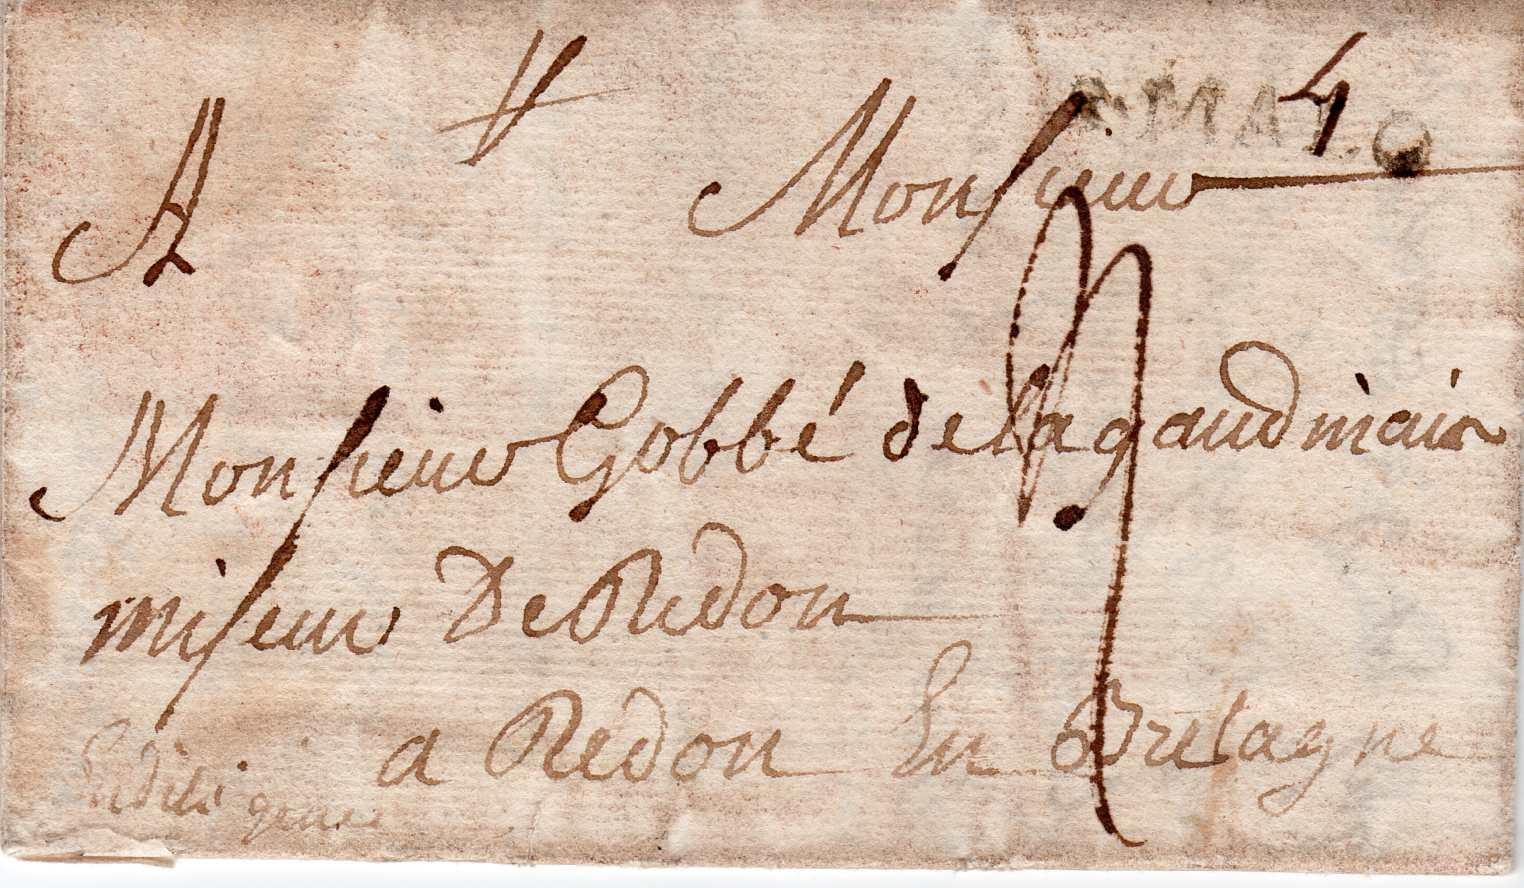 S. MALO
4
A Monsieur
Monsieur Gobbé de la gaudmais
miseur De Redon
a Redon En Bretagne
En dili gence